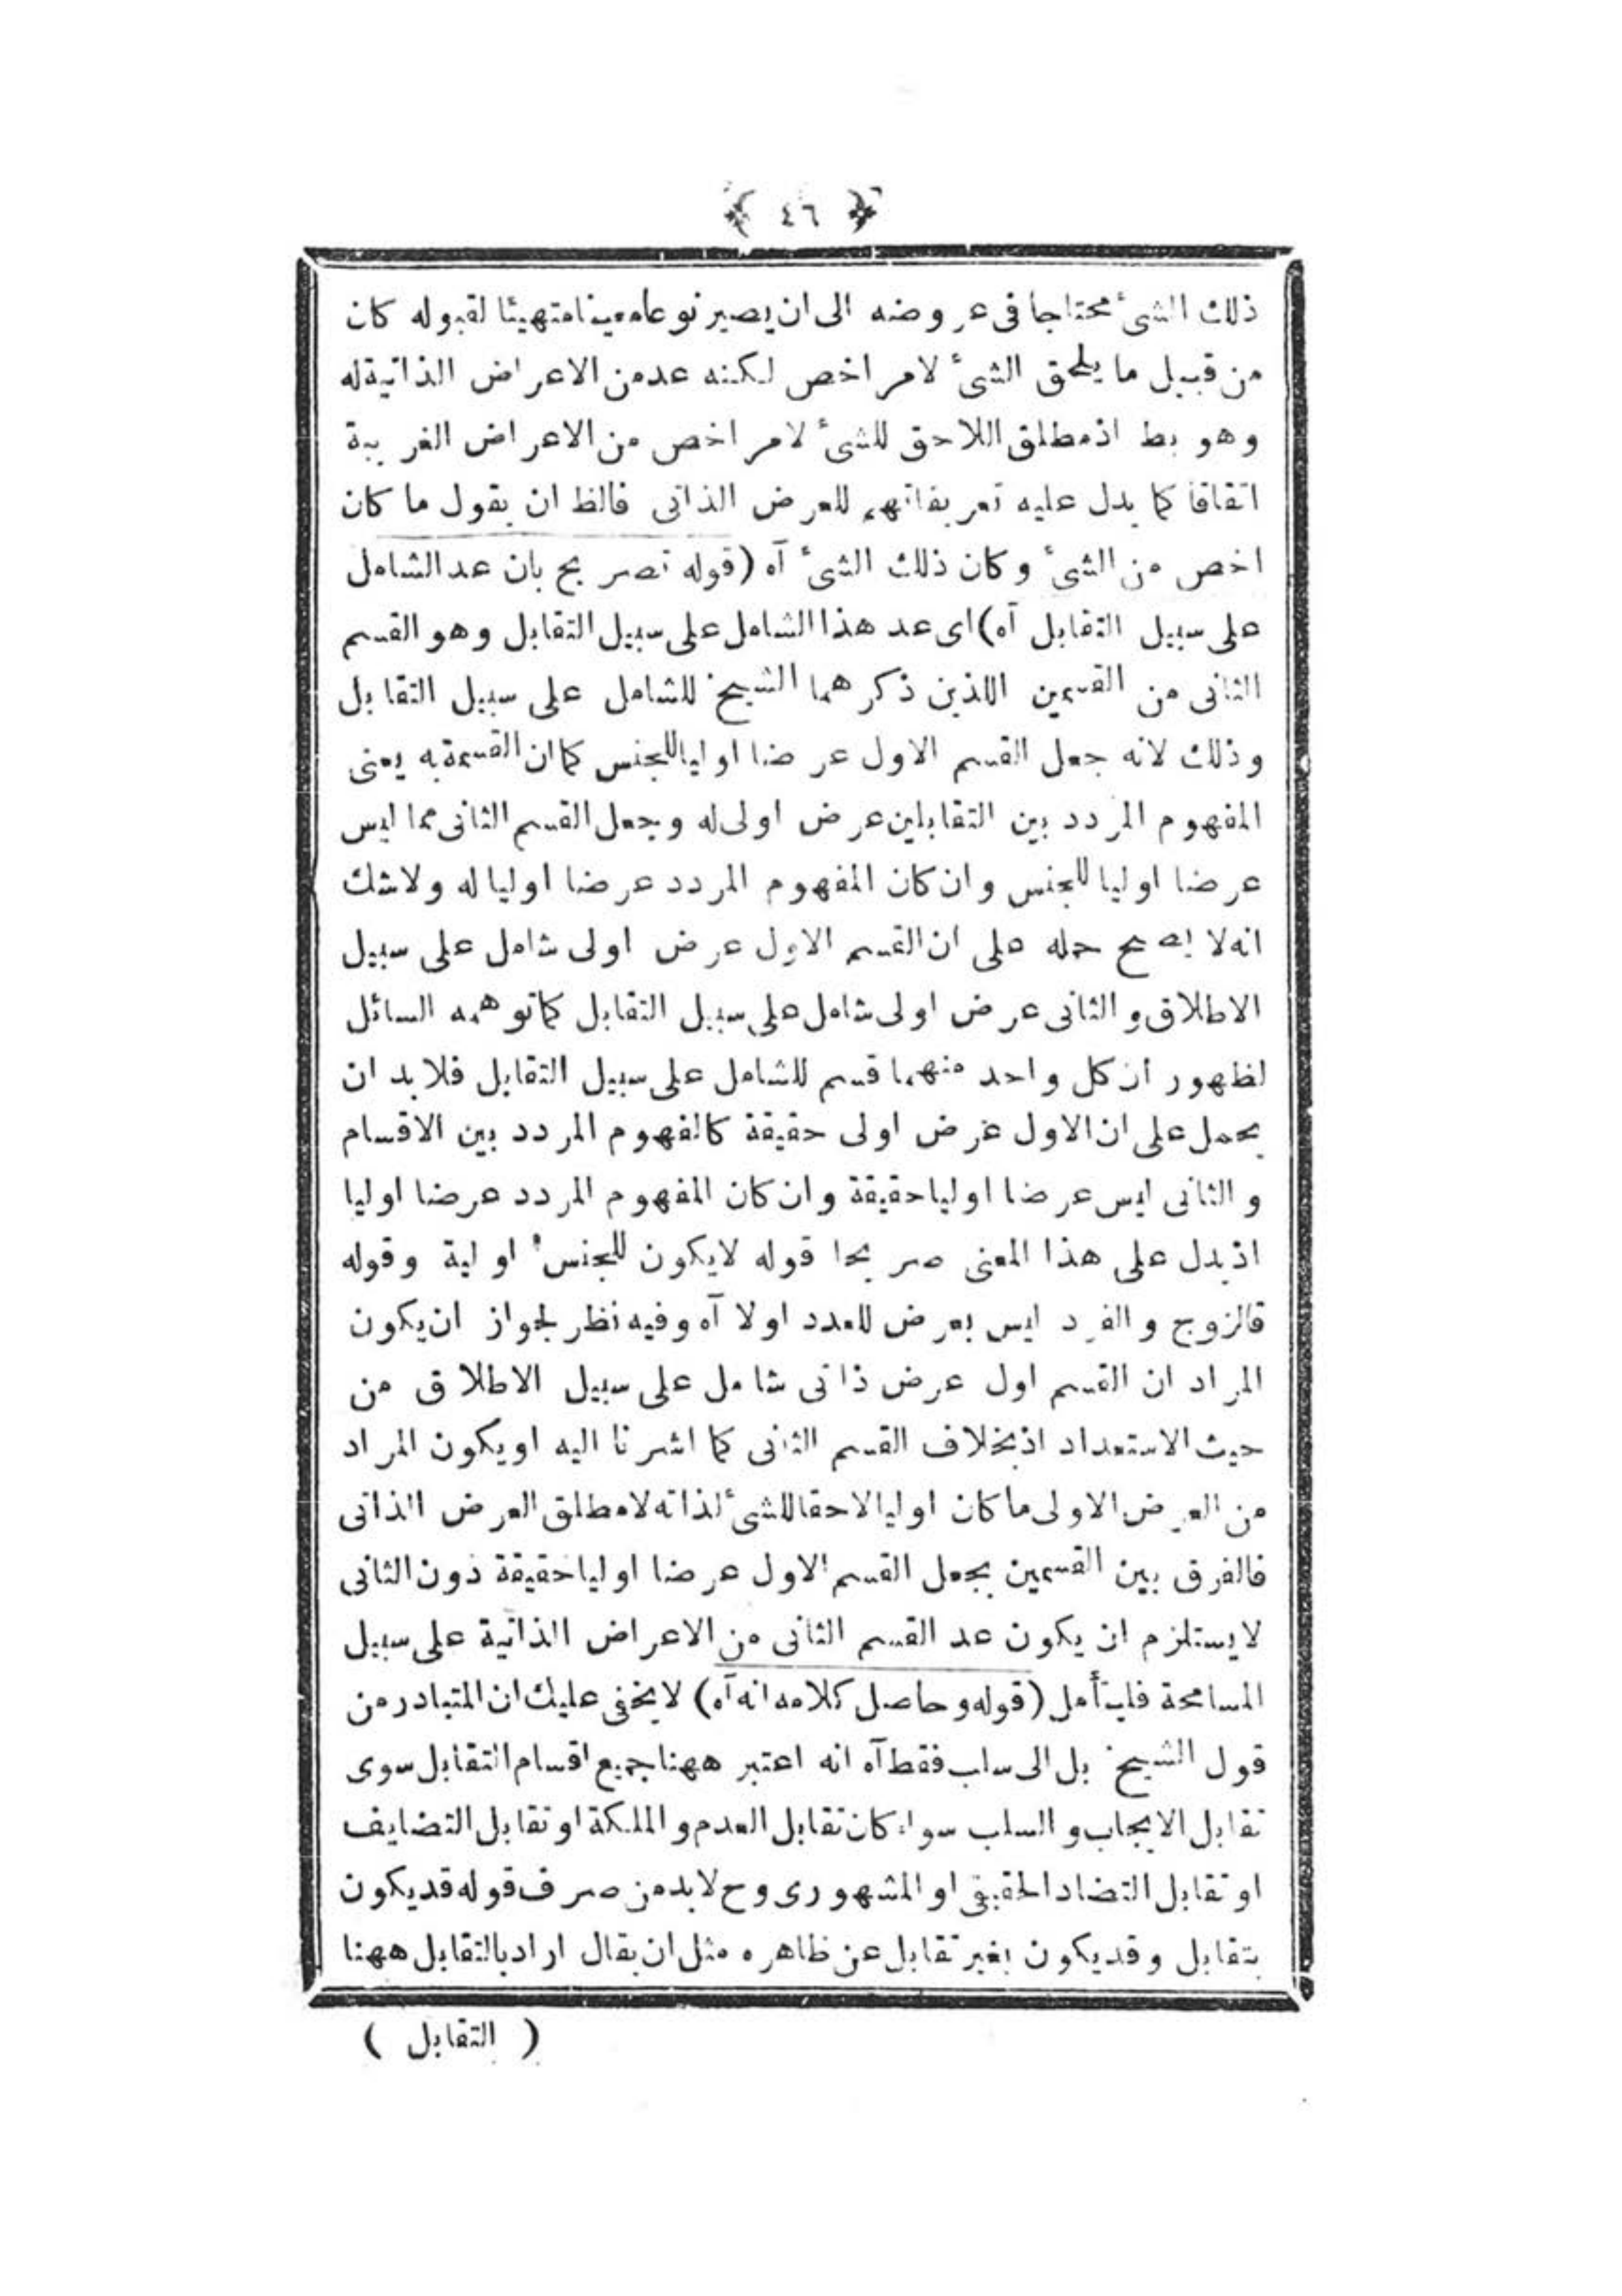 ﴿ ٤٦ ﴾
ذلك الشئ محتاجا فى عروضه الى ان يصير نوعا معينا متهيئا لقبوله كان
من قبيل ما يلحق الشئ لامر اخص لكنه عد من الاعراض الذاتية له
وهو بط اذ مطلق اللاحق للشئ لامر اخص من الاعراض الغريبة
اتفاقا كما يدل عليه تعريفاتهم للعرض الذاتى فالظ ان يقول ما كان
اخص من الشئ وكان ذلك الشئ آه (قوله تصريح بان عد الشامل
على سبيل التقابل آه) اى عد هذا الشامل على سبيل التقابل وهو القسم
الثانى من القسمين اللذين ذكرهما الشيخ للشامل على سبيل التقابل
وذلك لانه جعل القسم الاول عرضا اوليا للجنس كما ان القسمة به يعنى
المفهوم المردد بين التقابلين عرض اولى له وجعل القسم الثانى مما ليس
عرضا اوليا للجنس وان كان المفهوم المردد عرضا اوليا له ولا شك
انه لا يصح حمله على ان القسم الاول عرض اولى شامل على سبيل
الاطلاق والثانى عرض اولى شامل على سبيل التقابل كما توهمه السائل
لظهور ان كل واحد منهما قسم للشامل على سبيل التقابل فلا بد ان
يحمل على ان الاول عرض اولى حقيقة كالمفهوم المردد بين الاقسام
والثانى ليس عرضا اوليا حقيقة وان كان المفهوم المردد عرضا اوليا
اذ يدل على هذا المعنى صريحا قوله لا يكون للجنس اولية وقوله
فالزوج والفرد ليس بعرض للعدد اولا آه وفيه نظر لجواز ان يكون
المراد ان القسم اول عرض ذاتى شامل على سبيل الاطلاق من
حيث الاستعداد اذ بخلاف القسم الثانى كما اشرنا اليه او يكون المراد
من العرض الاولى ما كان اوليا لاحقا للشئ لذاته لا مطلق العرض الذاتى
فالفرق بين القسمين بجعل القسم الاول عرضا اوليا حقيقة دون الثانى
لا يستلزم ان يكون عد القسم الثانى من الاعراض الذاتية على سبيل
المسامحة فليتأمل (قوله وحاصل كلامه انه آه) لا يخفى عليك ان المتبادر من
قول الشيخ بل الى سلب فقط آه انه اعتبر ههنا جميع اقسام التقابل سوى
تقابل الايجاب والسلب سواء كان تقابل العدم والملكة او تقابل التضايف
او تقابل التضاد الحقيقى او المشهورى وح لا بد من صرف قوله قد يكون
بتقابل وقد يكون بغير تقابل عن ظاهره مثل ان يقال اراد بالتقابل ههنا
( التقابل )